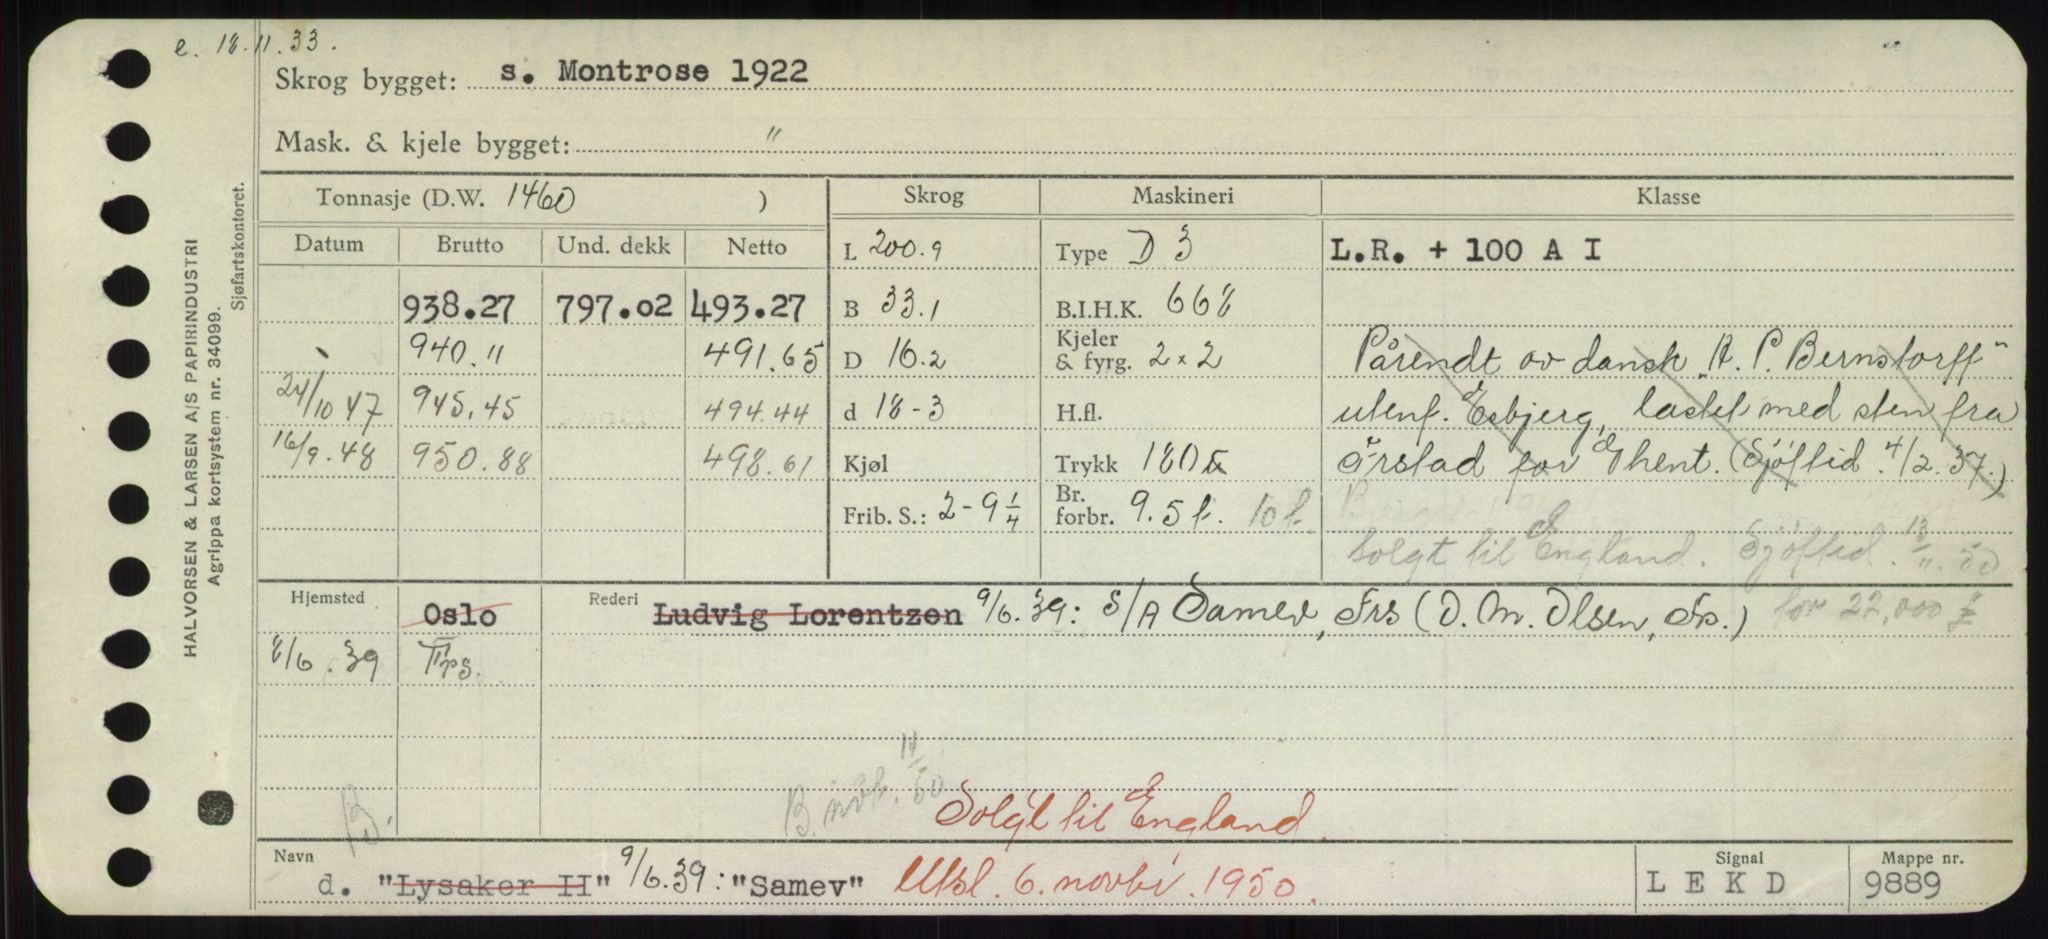 e. 18.11.33.
Skrog bygget: s. Montrose 1922
Mask. & kjele bygget: "
Tonnasje (D.W. 1460 ) Skrog Maskineri Klasse
Datum Brutto Und. dekk Netto L 200.9 Type D 3 L.R. + 100 A I
938.27 797.02 493.27 B 33.1 B.I.H.K. 668
940.11 491.65 D 16.2 Kjeler & fyrg. 2 x 2 Pårendt av dansk "A. P. Bernstorff"
24/10 47 945.45 494.44 d 18-3 H.fl. utenf. Esbjerg, lastet med sten fra
16/9.48 950.88 498.61 Kjøl Trykk 180 Ørstad for Ghent. (Sjöftid. 4/2.37.)
Frib. S.: 2-9 1/4 Br. forbr. 9.5 t. 10 t.
Solgt til England. Sjöftid. 13/11.50
Hjemsted Oslo Rederi Ludvig Lorentzen 9/6.39: S/A Samev, Frs (O. M. Olsen, Frs.) for 22,000 £
8/6.39 Frs.
B. not. 50
B. Solgt til England.
Navn d. "Lysaker II" 9/6.39: "Samev" Utsl. 6. novbr. 1950. Signal LEKD Mappe nr. 9889
HALVORSEN & LARSEN A/S PAPIRINDUSTRI
Agrippa kortsystem nr. 34099.
Sjøfartskontoret.